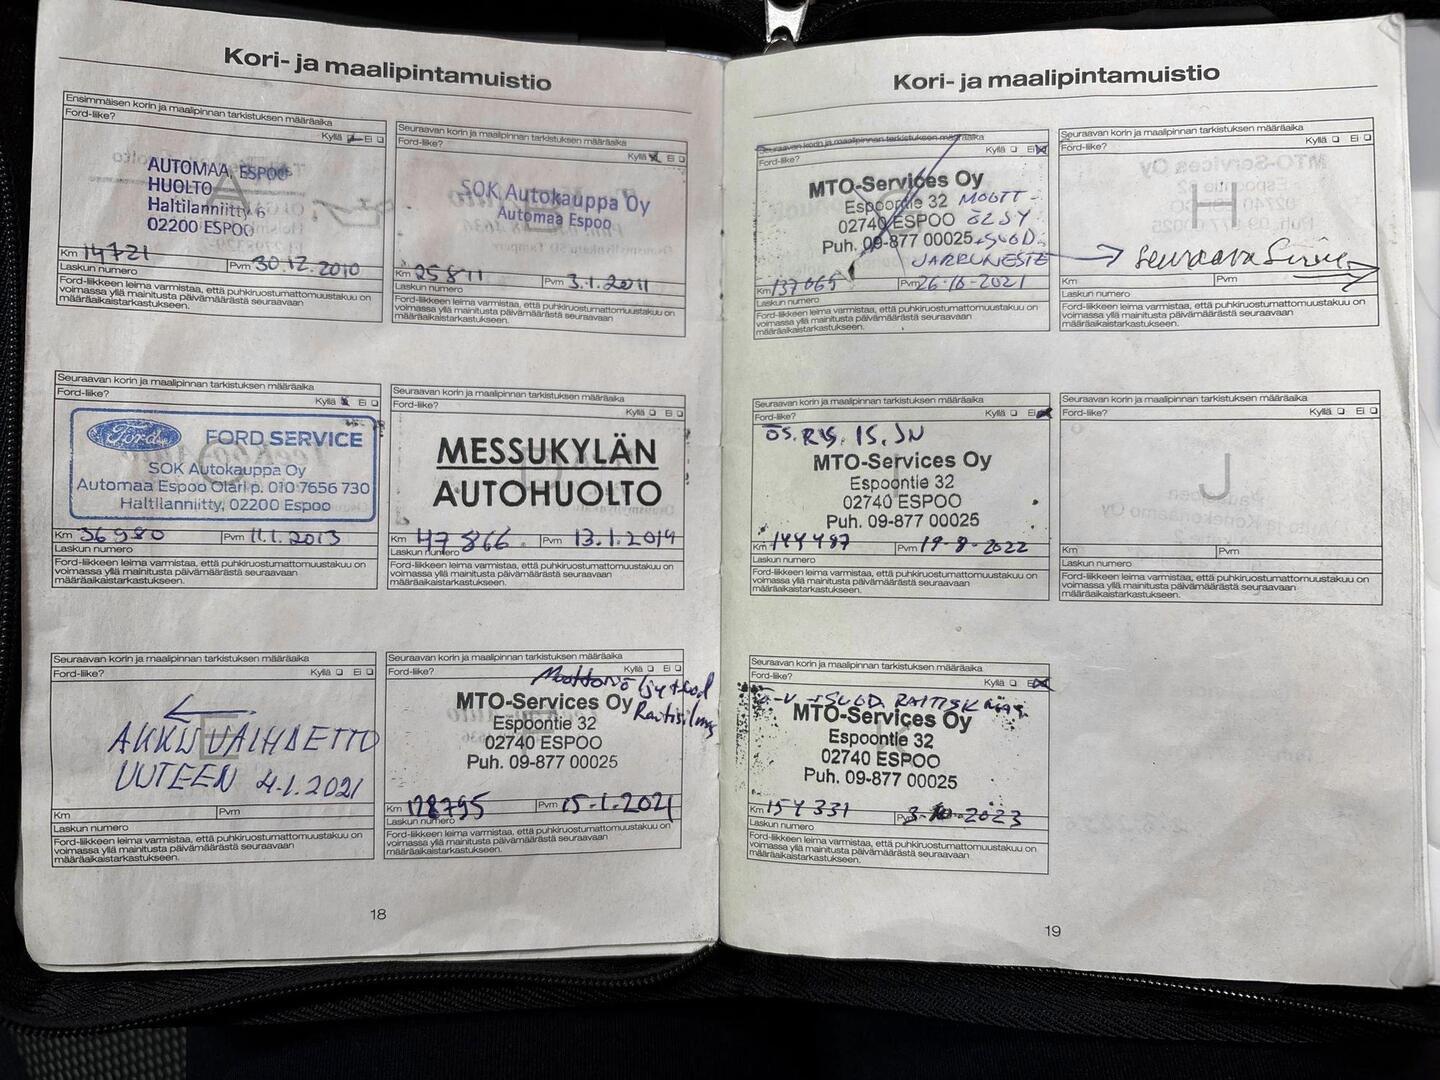 Kori- ja maalipintamuistio
Ensimmäisen korin ja maalipinnan tarkistuksen määräaika
Ford-liike?
Kyllä Ei
AUTOMAA, ESPOO
HUOLTO
Haltilanniitty 6
02200 ESPOO
A
Km 14721 Pvm 30.12.2010
Laskun numero
Ford-liikkeen leima varmistaa, että puhkiruostumattomuustakuu on
voimassa yllä mainitusta päivämäärästä seuraavaan
määräaikaistarkastukseen.
Seuraavan korin ja maalipinnan tarkistuksen määräaika
Ford-liike?
Kyllä Ei
SOK Autokauppa Oy
Automaa Espoo
Km 25811 Pvm 3.1.2011
Laskun numero
Ford-liikkeen leima varmistaa, että puhkiruostumattomuustakuu on
voimassa yllä mainitusta päivämäärästä seuraavaan
määräaikaistarkastukseen.
Seuraavan korin ja maalipinnan tarkistuksen määräaika
Ford-liike?
Kyllä Ei
Ford FORD SERVICE
SOK Autokauppa Oy
Automaa Espoo Olari p. 010 7656 730
Haltilanniitty, 02200 Espoo
Km 36980 Pvm 11.1.2013
Laskun numero
Ford-liikkeen leima varmistaa, että puhkiruostumattomuustakuu on
voimassa yllä mainitusta päivämäärästä seuraavaan
määräaikaistarkastukseen.
Seuraavan korin ja maalipinnan tarkistuksen määräaika
Ford-liike?
Kyllä Ei
MESSUKYLÄN
AUTOHUOLTO
Km 47866 Pvm 13.1.2014
Laskun numero
Ford-liikkeen leima varmistaa, että puhkiruostumattomuustakuu on
voimassa yllä mainitusta päivämäärästä seuraavaan
määräaikaistarkastukseen.
Seuraavan korin ja maalipinnan tarkistuksen määräaika
Ford-liike?
Kyllä Ei
AKKU VAIHDETTU
UUTEEN 4.1.2021
E
Km Pvm
Laskun numero
Ford-liikkeen leima varmistaa, että puhkiruostumattomuustakuu on
voimassa yllä mainitusta päivämäärästä seuraavaan
määräaikaistarkastukseen.
Seuraavan korin ja maalipinnan tarkistuksen määräaika
Ford-liike?
Kyllä Ei
MTO-Services Oy
Espoontie 32
02740 ESPOO
Puh. 09-877 00025
Km 128795 Pvm 15.1.2021
Laskun numero
Ford-liikkeen leima varmistaa, että puhkiruostumattomuustakuu on
voimassa yllä mainitusta päivämäärästä seuraavaan
määräaikaistarkastukseen.
18
Kori- ja maalipintamuistio
Seuraavan korin ja maalipinnan tarkistuksen määräaika
Ford-liike?
Kyllä Ei
MTO-Services Oy
Espoontie 32 MOOTT-
02740 ESPOO ÖLJY
Puh. 09-877 00025 +SUOD.
JARRUNESTE
Km 137065 Pvm 26-10-2021
Laskun numero
Ford-liikkeen leima varmistaa, että puhkiruostumattomuustakuu on
voimassa yllä mainitusta päivämäärästä seuraavaan
määräaikaistarkastukseen.
Seuraavan korin ja maalipinnan tarkistuksen määräaika
Ford-liike?
Kyllä Ei
H
Seuraava Sivu
Km Pvm
Laskun numero
Ford-liikkeen leima varmistaa, että puhkiruostumattomuustakuu on
voimassa yllä mainitusta päivämäärästä seuraavaan
määräaikaistarkastukseen.
Seuraavan korin ja maalipinnan tarkistuksen määräaika
Ford-liike?
Kyllä Ei
MTO-Services Oy
Espoontie 32
02740 ESPOO
Puh. 09-877 00025
Km 144487 Pvm 19-8-2022
Laskun numero
Ford-liikkeen leima varmistaa, että puhkiruostumattomuustakuu on
voimassa yllä mainitusta päivämäärästä seuraavaan
määräaikaistarkastukseen.
Seuraavan korin ja maalipinnan tarkistuksen määräaika
Ford-liike?
Kyllä Ei
J
Km Pvm
Laskun numero
Ford-liikkeen leima varmistaa, että puhkiruostumattomuustakuu on
voimassa yllä mainitusta päivämäärästä seuraavaan
määräaikaistarkastukseen.
Seuraavan korin ja maalipinnan tarkistuksen määräaika
Ford-liike?
Kyllä Ei
+SUOD. RAITISK
MTO-Services Oy
Espoontie 32
02740 ESPOO
Puh. 09-877 00025
Km 154331 Pvm 3-10-2023
Laskun numero
Ford-liikkeen leima varmistaa, että puhkiruostumattomuustakuu on
voimassa yllä mainitusta päivämäärästä seuraavaan
määräaikaistarkastukseen.
19